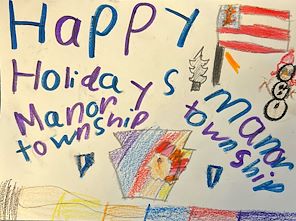 HAPPY
Holidays
Manor
township
Manor
township